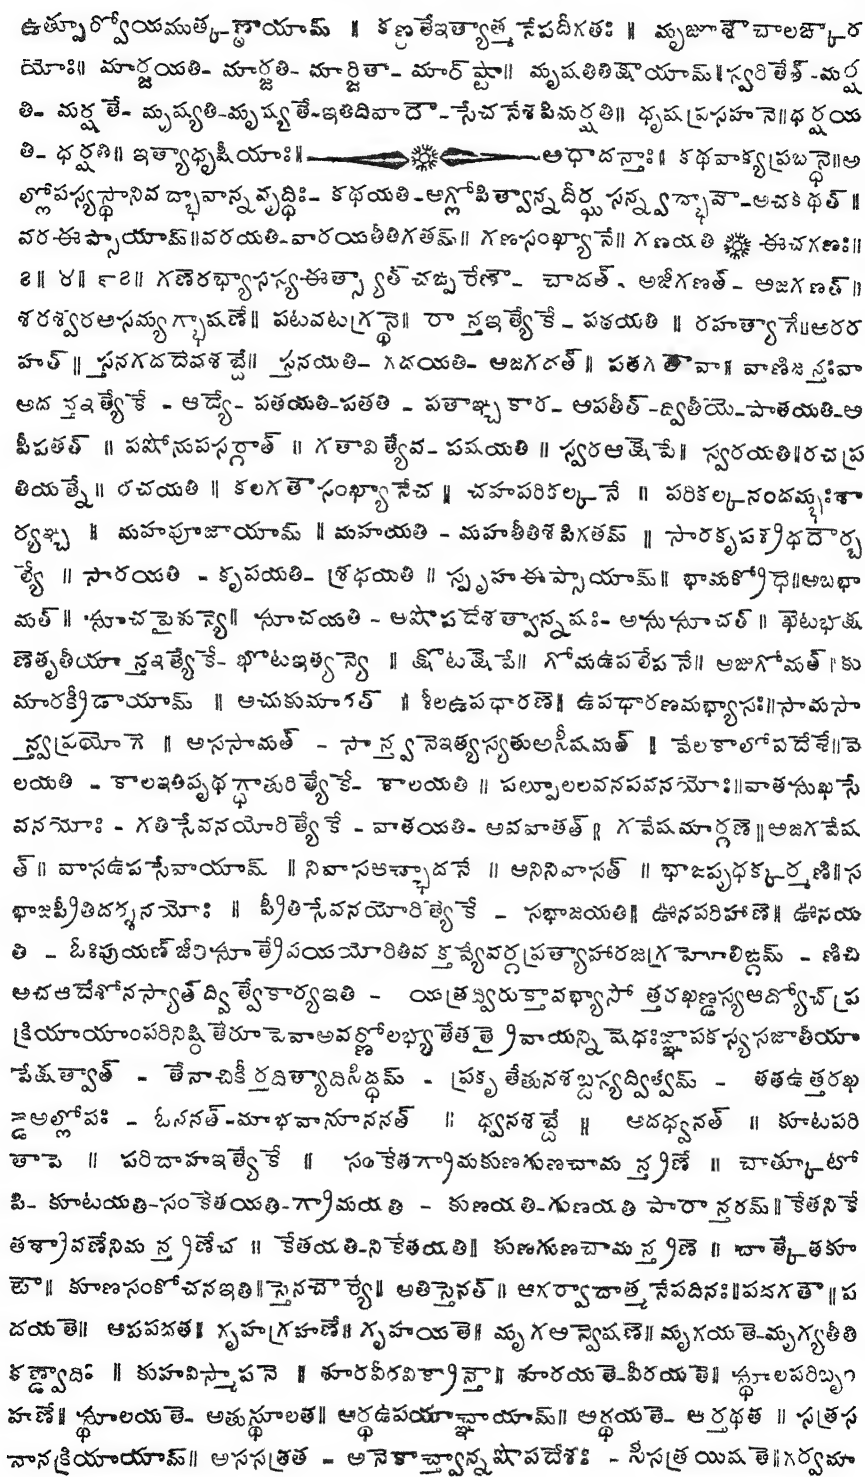 ఉత్పూర్వోయముత్కణ్ఠాయామ్ ॥ కణ్ఠతేఇత్యాత్మనేపదీగతః ॥ మృజూశౌచాలఙ్కార
యోః॥ మార్జయతి- మార్జతి- మార్జితా- మార్ష్టా॥ మృషతితిక్షాయామ్॥స్వరితేత్-మర్ష
తి- మర్షతే- మృష్యతి-మృష్యతే-ఇతిదివాదౌ-సేచనేశపిమర్షతి॥ ధృషప్రసహనే॥ధర్షయ
తి- ధర్షతి॥ ఇత్యాధృషీయాః॥ అథాదన్తాః॥ కథవాక్యప్రబన్ధే॥అ
ల్లోపస్యస్థానివద్భావాన్నవృద్ధిః- కథయతి-అగ్లోపిత్వాన్నదీర్ఘసన్వద్భావౌ-అచకథత్॥
వరఈప్సాయామ్॥వరయతి-వారయతీతిగతమ్॥ గణసంఖ్యానే॥ గణయతి ఈచగణః॥
౭॥ ౪॥ ౯౭॥ గణేరభ్యాసస్యఈత్స్యాత్ చఙ్పరేణౌ- చాదత్- అజీగణత్- అజగణత్॥
శఠశ్వఠఅసమ్యగ్భాషణే॥ పటవటగ్రన్థే॥ రాన్తఇత్యేకే- పఠయతి ॥ రహత్యాగే॥అరర
హత్ ॥ స్తనగదదేవశబ్దే॥ స్తనయతి- గదయతి- అజగదత్॥ పతగతౌవా॥ వాణిజన్తఃవా
అదన్తఇత్యేకే - ఆద్యే- పతయతి-పతతి - పతాఞ్చకార- అపతీత్-ద్వితీయే-పాతయతి-అ
పీపతత్ ॥ పషోనుపసర్గాత్ ॥ గతావిత్యేవ- పషయతి ॥ స్వరఆక్షేపే॥ స్వరయతి॥రచప్ర
తియత్నే॥ రచయతి ॥ కలగతౌసంఖ్యానేచ ॥ చహపరికల్కనే ॥ పరికల్కనందమ్భఃశా
ఠ్యఞ్చ ॥ మహపూజాయామ్ ॥మహయతి - మహతీతిశపిగతమ్ ॥ సారకృపశ్రథదౌర్బ
ల్యే ॥ సారయతి - కృపయతి- శ్రథయతి ॥ స్పృహఈప్సాయామ్॥ భామక్రోధే॥అబభా
మత్॥ సూచపైశున్యే॥ సూచయతి - అషోపదేశత్వాన్నషః- అసుసూచత్॥ ఖేటభక్ష
ణేతృతీయాన్తఇత్యేకే- ఖోటఇత్యన్యే ॥ క్షోటక్షేపే॥ గోమఉపలేపనే॥ అజుగోమత్॥కు
మారక్రీడాయామ్ ॥ అచుకుమారత్ ॥ శీలఉపధారణే॥ ఉపధారణమభ్యాసః॥సామసా
న్త్వప్రయోగే ॥ అససామత్ - సాన్త్వనేఇత్యస్యతుఅసీషమత్ ॥ వేలకాలోపదేశే॥వే
లయతి - కాలఇతిపృథగ్ధాతురిత్యేకే- కాలయతి ॥ పల్పూలలవనపవనయోః॥వాతసుఖసే
వనయోః - గతిసేవనయోరిత్యేకే - వాతయతి- అవవాతత్ ॥ గవేషమార్గణే॥అజగవేష
త్॥ వాసఉపసేవాయామ్ ॥నివాసఆచ్ఛాదనే ॥ అనినివాసత్ ॥ భాజపృథక్కర్మణి॥స
భాజప్రీతిదర్శనయోః ॥ ప్రీతిసేవనయోరిత్యేకే - సభాజయతి॥ ఊనపరిహాణే॥ ఊనయ
తి - ఓఃపుయణ్‌జీతిసూత్రేపయయోరితివక్తవ్యేవర్గప్రత్యాహారజగ్రహోలిఙ్గమ్ - ణిచి
అచఆదేశోనస్యాత్ ద్విత్వేకార్యఇతి - యత్రద్విరుక్తావభ్యాసోత్తరఖణ్డస్యఆద్యోచ్ ప్ర
క్రియాయాంపరినిష్ఠితేరూపేవాఅవర్ణోలభ్యతేతత్రైవాయన్నిషేధఃజ్ఞాపకస్యసజాతీయా
పేక్షత్వాత్ - తేనాచికీర్తదిత్యాదిసిద్ధమ్ - ప్రకృతేతునశబ్దస్యద్విత్వమ్ - తతఉత్తరఖ
ణ్డేఅల్లోపః - ఓననత్-మాభవానూననత్ ॥ ధ్వనశబ్దే ॥ అదధ్వనత్ ॥ కూటపరి
తాపే ॥ పరిదాహఇత్యేకే ॥ సంకేతగ్రామకుణగుణచామన్త్రణే ॥ చాత్కూటో
పి- కూటయతి-సంకేతయతి-గ్రామయతి - కుణయతి-గుణయతి పాఠాన్తరమ్॥కేతనికే
తశ్రావణేనిమన్త్రణేచ ॥ కేతయతి-నికేతయతి॥ కుణగుణచామన్త్రణే ॥ చాత్కేతకూ
టౌ॥ కూణసంకోచనఇతి॥స్తేనచౌర్యే॥ అతిస్తేనత్॥ ఆగర్వాదాత్మనేపదినః॥పదగతౌ॥ప
దయతే॥ అపపదత॥ గృహగ్రహణే॥ గృహయతే॥ మృగఅన్వేషణే॥మృగయతే-మృగ్యతీతి
కణ్డ్వాదిః ॥ కుహవిస్మాపనే ॥ శూరవీరవిక్రాన్తౌ॥ శూరయతే-వీరయతే॥ స్థూలపరిబృం
హణే॥ స్థూలయతే- అతుస్థూలత॥ అర్థఉపయాఞ్చాయామ్॥ అర్థయతే- ఆర్తథత ॥ సత్రస
న్తానక్రియాయామ్॥ అససత్రత - అనేకాచ్త్వాన్నషోపదేశః - సిసత్రయిషతే॥గర్వమా